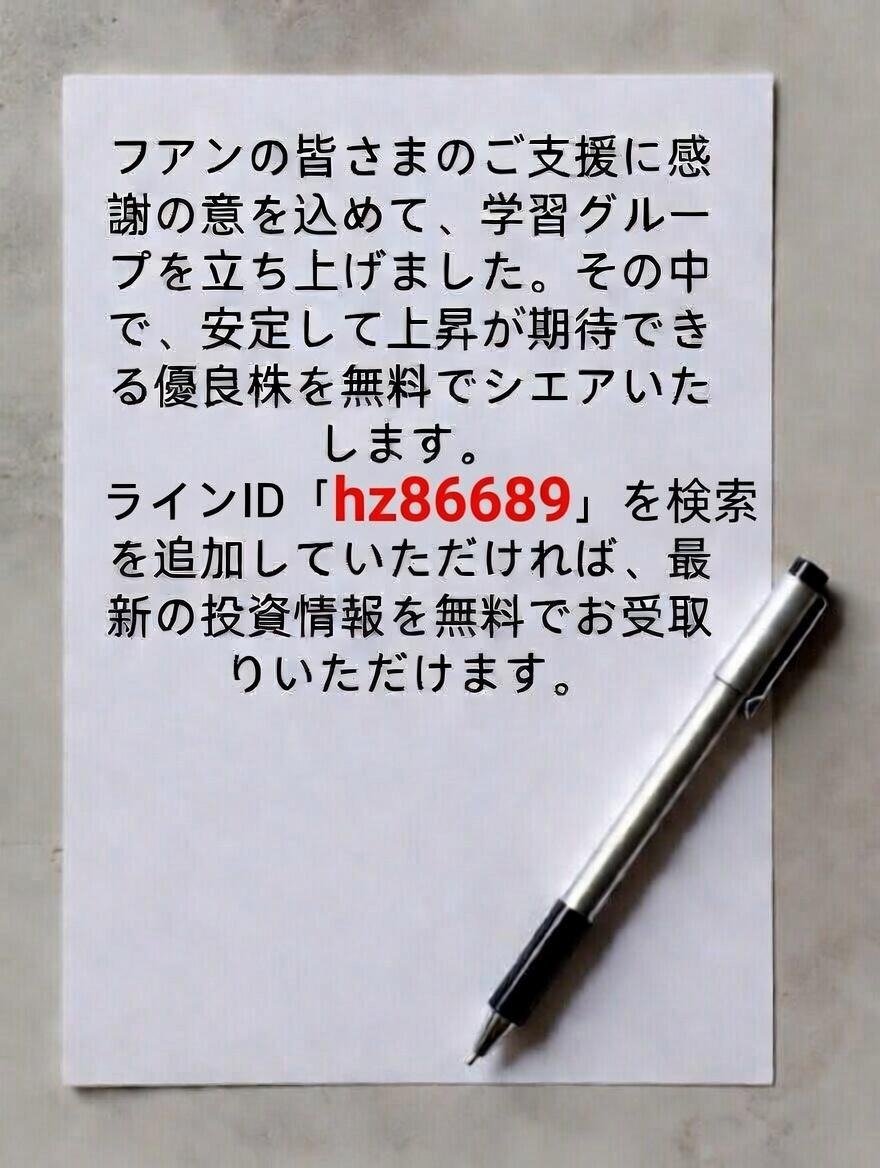 フアンの皆さまのご支援に感
謝の意を込めて、学習グルー
プを立ち上げました。その中
で、安定して上昇が期待でき
る優良株を無料でシエアいた
します。
ラインID「hz86689」を検索
を追加していただければ、最
新の投資情報を無料でお受取
りいただけます。